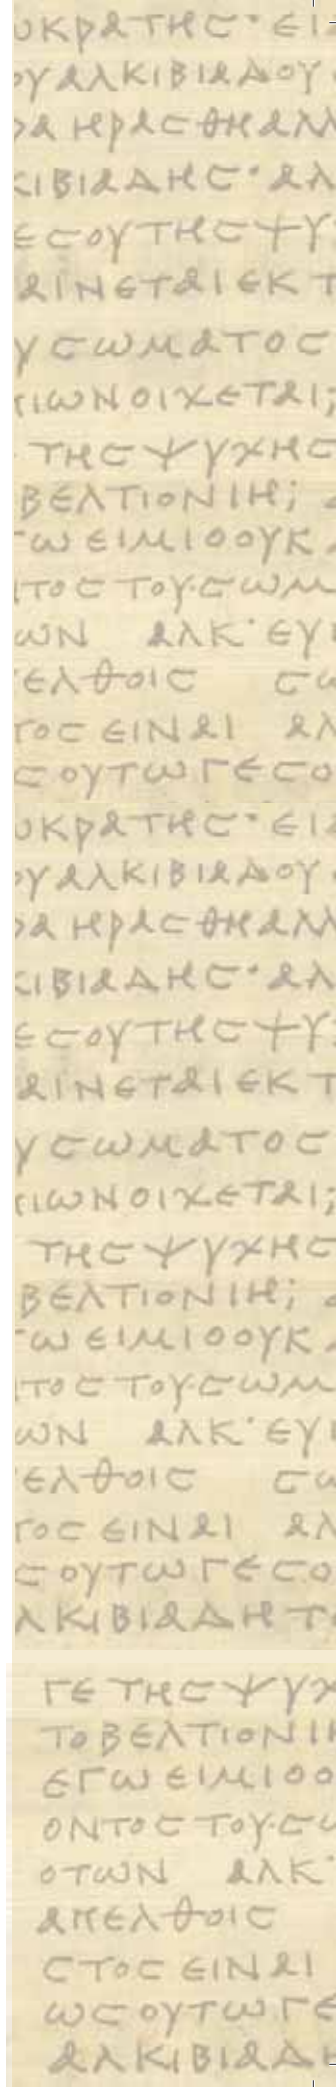 ΩΚΡΑΤΗС· ΕΙ
ΟΥΑΛΚΙΒΙΑΔΟΥ
ΡΑ ΗΡΑСΘΗ ΑΛΛ
ΚΙΒΙΑΔΗС· ΑΛ
ΕСΟΥ ΤΗС ΨΥ
ΑΙΝΕΤΑΙ ΕΚ Τ
Υ СΩΜΑΤΟС
ΤΙΩΝ ΟΙΧΕΤΑΙ;
ΤΗС ΨΥΧΗС
ΒΕΛΤΙΟΝ ΙΗ;
ΓΩ ΕΙΜΙ Ο ΟΥΚ
ΝΤΟС ΤΟΥ·СΩΜ
ΩΝ ΑΛΚ· ΕΥ
ΕΛΘΟΙС СΩ
ΤΟС ΕΙΝΑΙ ΑΛ
СΟΥΤΩ ΓΕ СΟ
ΩΚΡΑΤΗС· ΕΙ
ΟΥΑΛΚΙΒΙΑΔΟΥ
ΡΑ ΗΡΑСΘΗ ΑΛΛ
ΚΙΒΙΑΔΗС· ΑΛ
ΕСΟΥ ΤΗС ΨΥ
ΑΙΝΕΤΑΙ ΕΚ Τ
Υ СΩΜΑΤΟС
ΤΙΩΝ ΟΙΧΕΤΑΙ;
ΤΗС ΨΥΧΗС
ΒΕΛΤΙΟΝ ΙΗ;
ΓΩ ΕΙΜΙ Ο ΟΥΚ
ΝΤΟС ΤΟΥ·СΩΜ
ΩΝ ΑΛΚ· ΕΥ
ΕΛΘΟΙС СΩ
ΤΟС ΕΙΝΑΙ ΑΛ
СΟΥΤΩ ΓΕ СΟ
ΑΛΚΙΒΙΑΔΗ Τ
ΓΕ ΤΗС ΨΥΧ
ΤΟ ΒΕΛΤΙΟΝ ΙΗ
ΕΓΩ ΕΙΜΙ Ο Ο
ΟΝΤΟС ΤΟΥ·СΩ
ΟΤΩΝ ΑΛΚ·
ΑΠΕΛΘΟΙС
СΤΟС ΕΙΝΑΙ
ΩС ΟΥΤΩ ΓΕ
ΑΛΚΙΒΙΑΔΗ